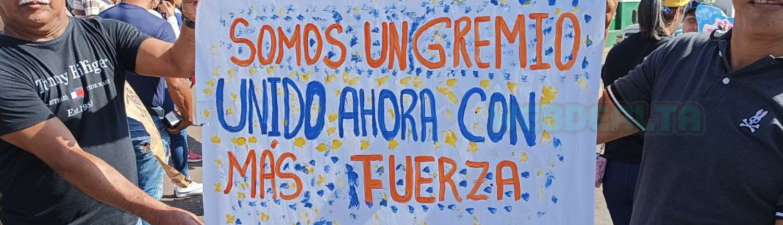 SOMOS UN GREMIO
UNIDO AHORA CON
MÁS FUERZA
Tommy Hilfiger